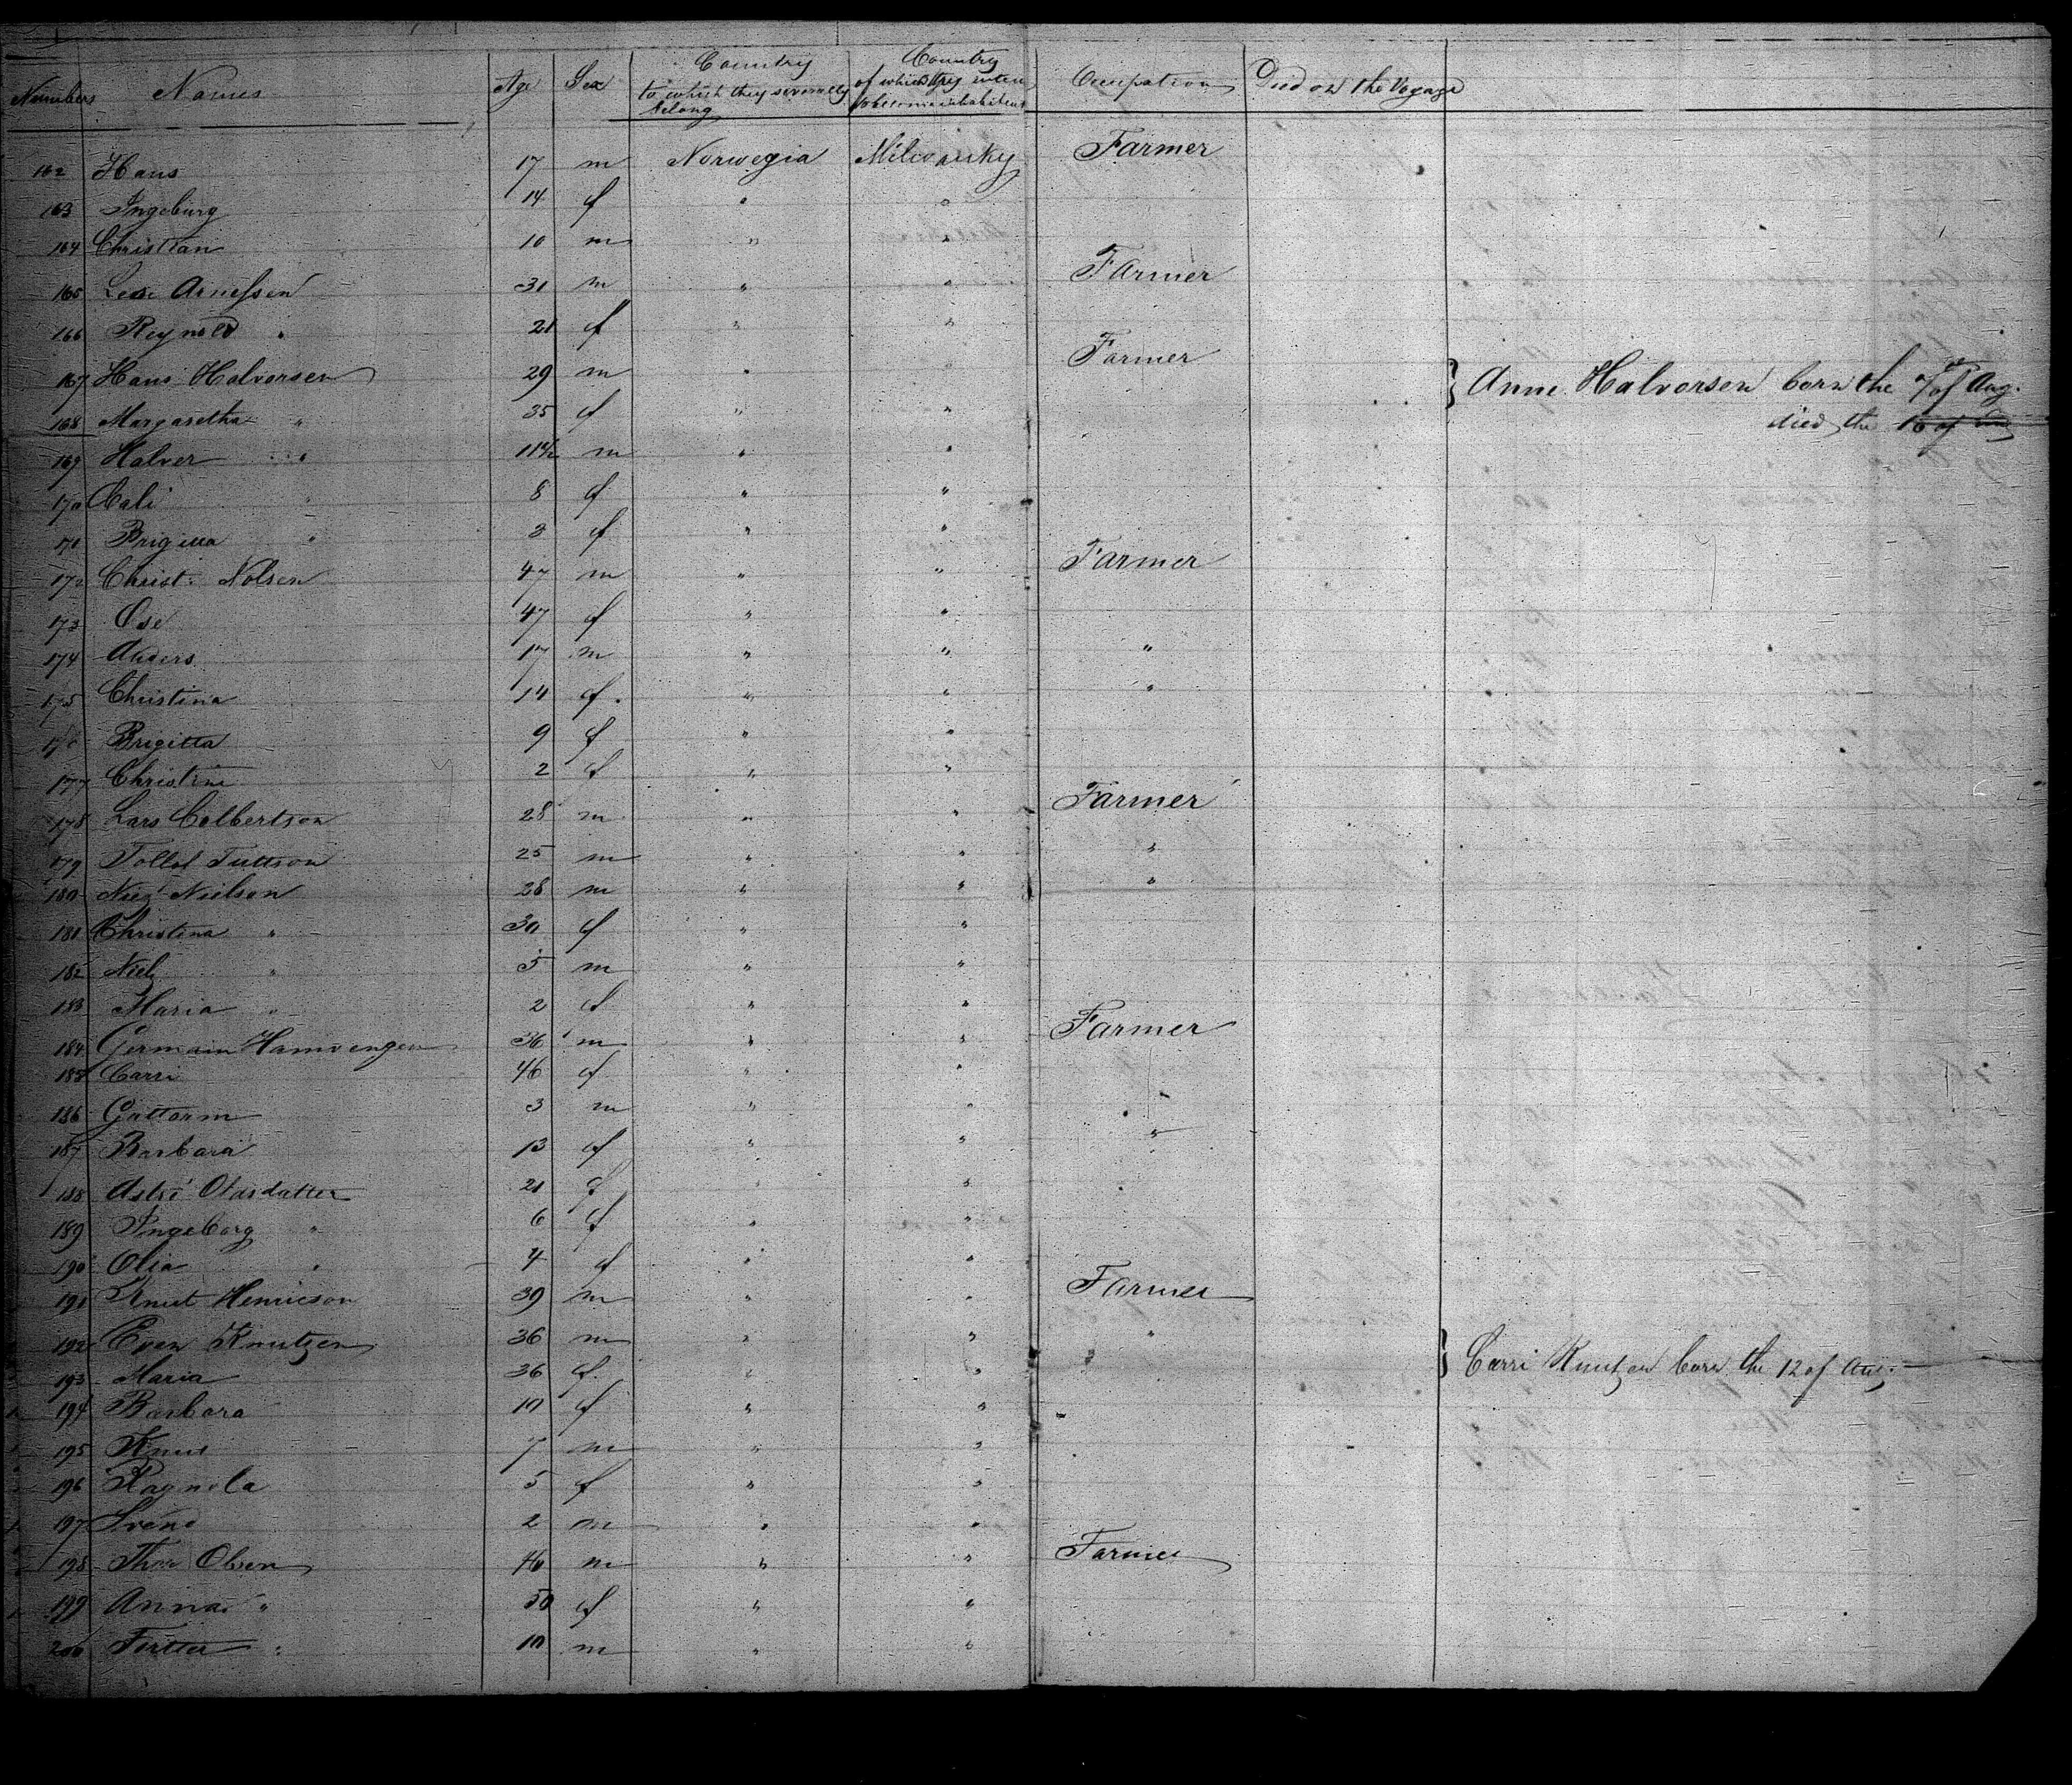 Numbers Names Age Sex Country to which they severally belong Country of which they inten to become inhabitens Occupation Died on the Voyage
162 Hans 17 m Norwegia Milwauky Farmer
163 Ingeburg 14 f " "
164 Christian 10 m " "
165 Arnessen 31 m " " Farmer
166 Reynild " 21 f " "
167 Hans Halvorsen 29 m " " Farmer } Anne Halvorsen born the 7 of Aug.
168 Margaretha " 35 f " " died the 10 of Aug
169 Halver " 11 m " "
170 Cali " 8 f " "
171 Brigitta " 3 f " "
172 Christ: Nolsen 47 m " " Farmer
173 Ose 47 f " "
174 Anders 17 m " " "
175 Christina 14 f. " " "
176 Brigitta 9 f " "
177 Christine 2 f " "
178 Lars Colbertson 28 m " " Farmer
179 Tollef Tuttson 25 m " " "
180 Niels Nielson 28 m " " "
181 Christina " 30 f " "
182 Niels " 5 m " "
183 Maria " 2 f " "
184 Germain Hamvengen 36 m " " Farmer
185 Carri 46 f " "
186 Guttorm 3 m " "
187 Barbara 13 f " " "
188 Astri Olasdatter 21 f " "
189 Ingeborg " 6 f " "
190 Olia " 4 f " "
191 Knut Henricson 39 m " " Farmer
192 Even Knutzen 36 m " " "
193 Maria 36 f. " " } Carri Knutzen born the 12 of Aug.
194 Barbara 10 f " "
195 Knut 7 m " "
196 Ragnila 5 f " "
197 Svend 2 m " "
198 Thor Olsen 46 m " " Farmer
199 Anna " 50 f " "
200 " 10 m " "